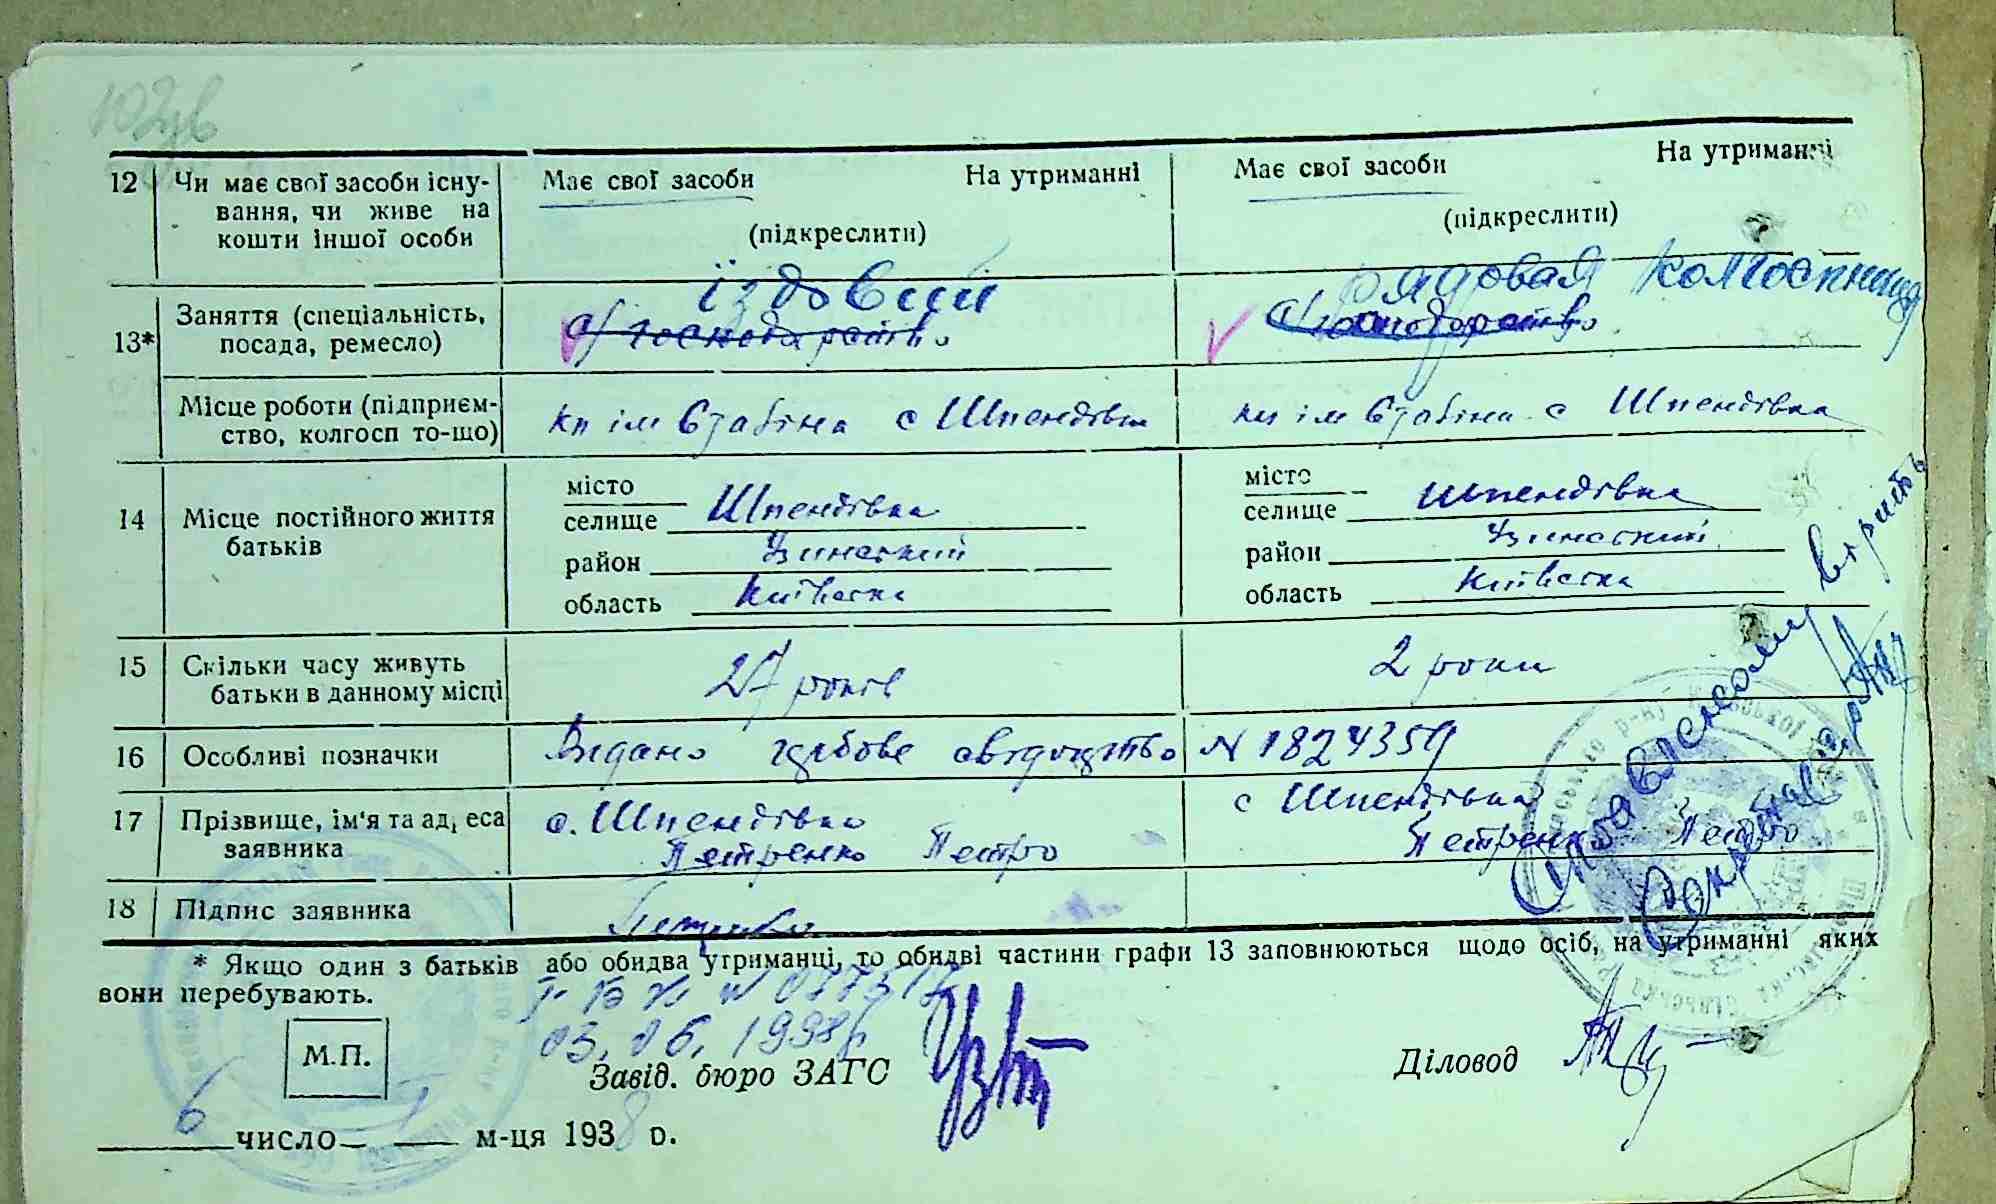 12 Чи має свої засоби існу- Має свої засоби На утриманні Має свої засоби На утриманні
вання, чи живе на
кошти іншої особи (підкреслити) (підкреслити)
їздовий Рядовая колгоспниця
13* Заняття (спеціальність, с/господарство с/господарство
посада, ремесло)
Місце роботи (підприєм- кп ім Сталіна с Шпендівка кп ім Сталіна с Шпендівка
ство, колгосп то-що)
14 Місце постійного життя місто місто
батьків селище Шпендівка селище Шпендівка
район Узинський район Узинський
область Київська область Київська
15 Скільки часу живуть 27 років 2 роки
батьки в данному місці
16 Особливі позначки Видано гербове свідоцтво N 1824359
17 Прізвище, ім'я та адреса с. Шпендівка с Шпендівка
заявника Петренко Петро Петренко Петро
18 Підпис заявника Петренко
Исправленному верить
* Якщо один з батьків або обидва утриманці, то обидві частини графи 13 заповнюються щодо осіб, на утриманні яких
вони перебувають.
03.06.1998
М.П. Завід. бюро ЗАГС Діловод
6 число м-ця 1938 р.